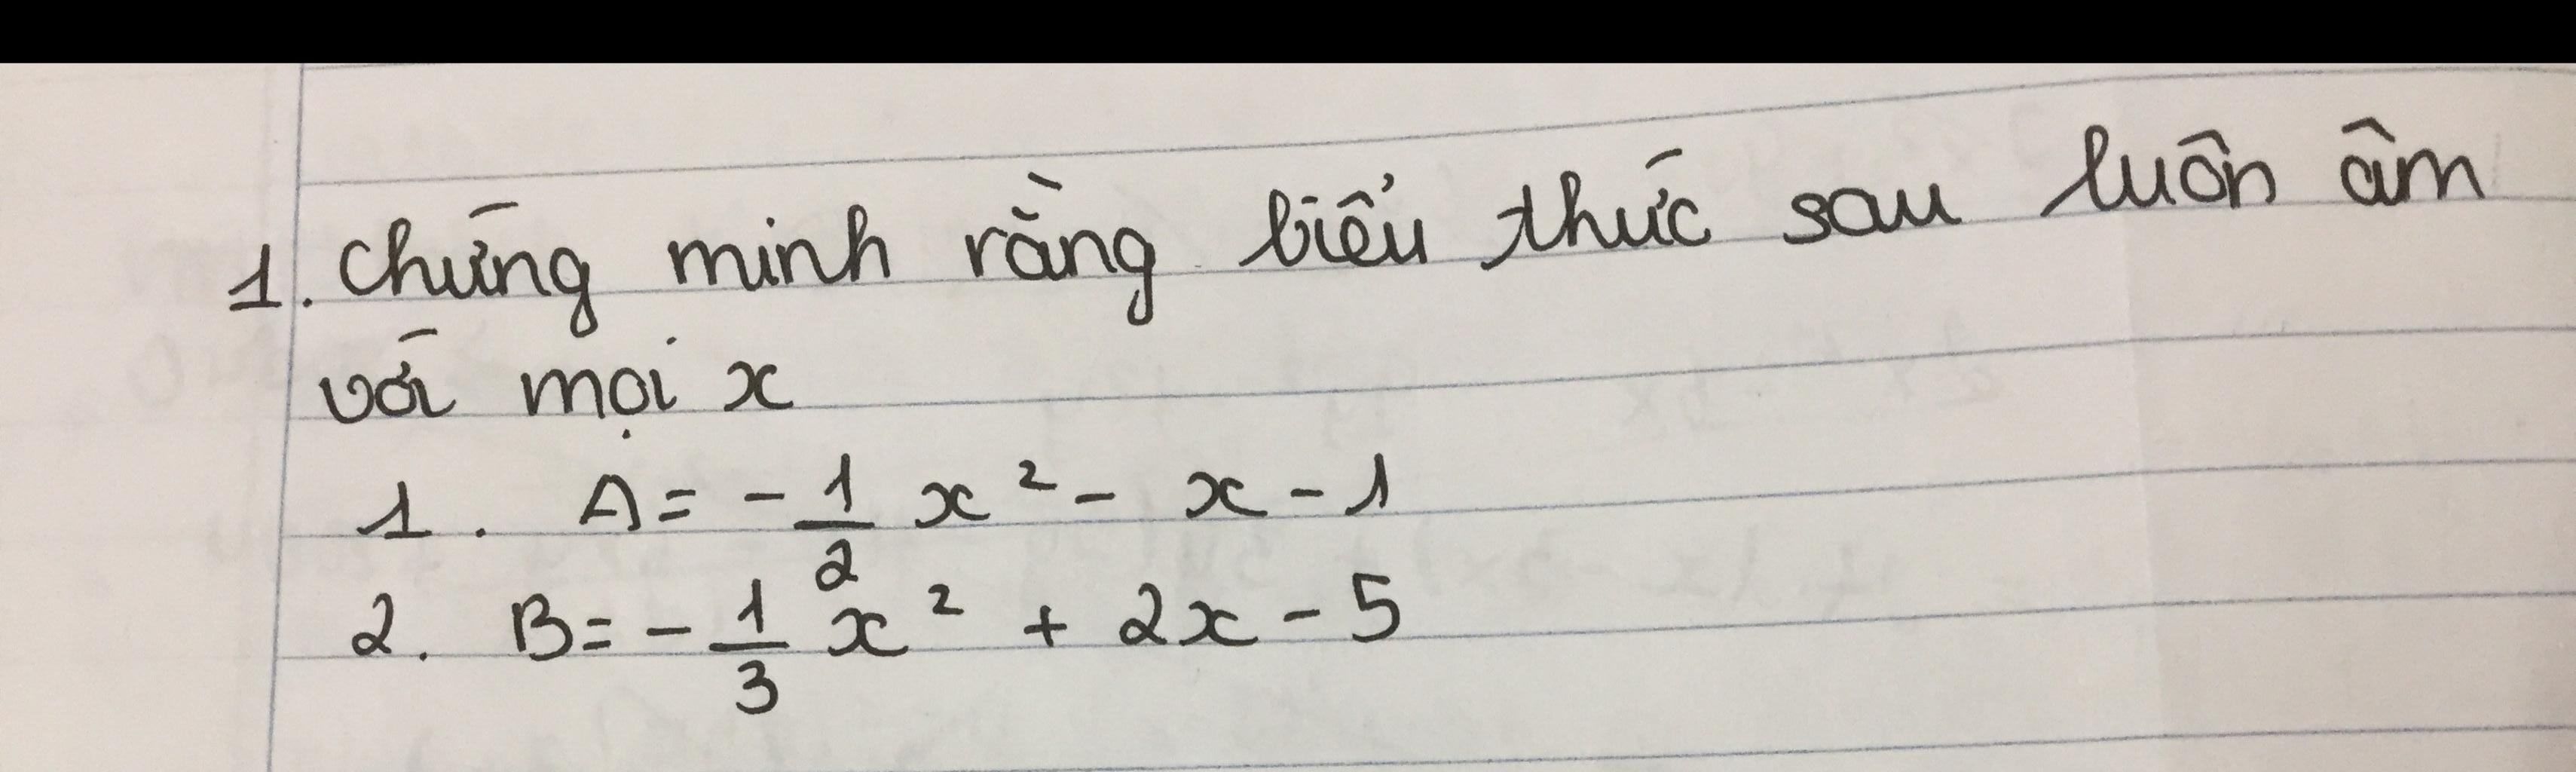 1. Chứng minh rằng biểu thức sau luôn âm
với mọi x
1. A = -1/2 x² - x - 1
2. B = -1/3 x² + 2x - 5